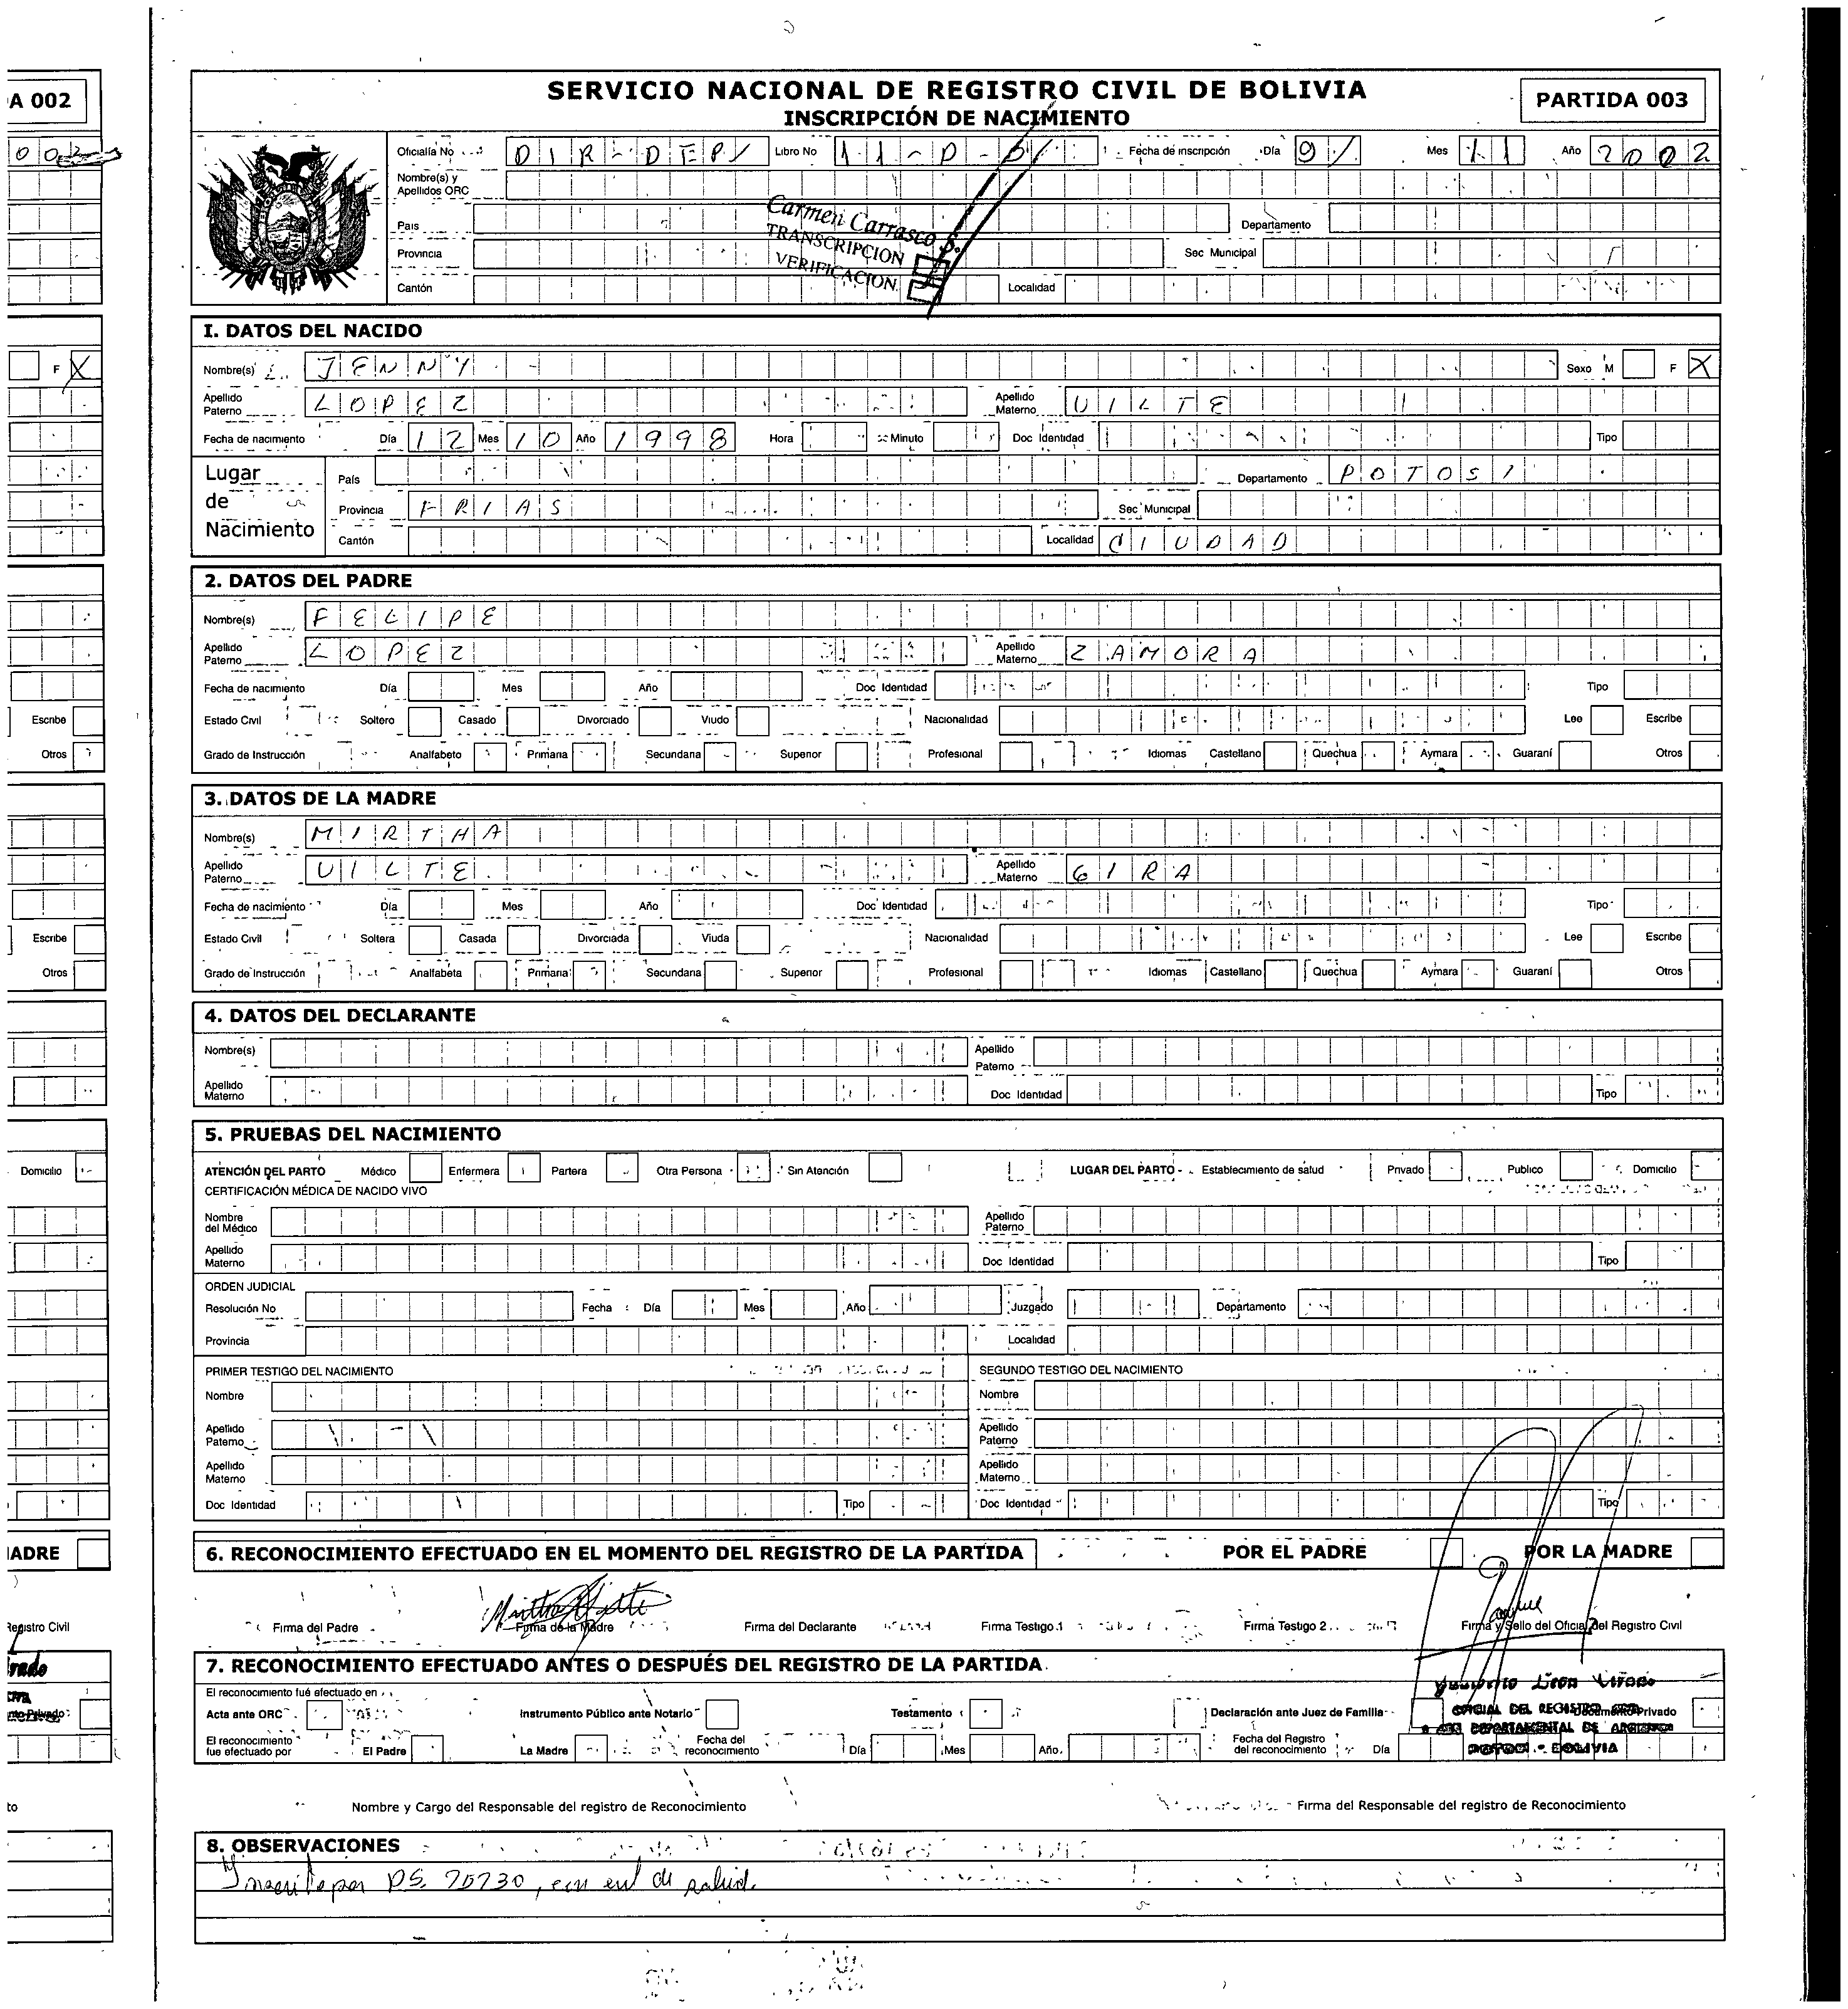 A 002
SERVICIO NACIONAL DE REGISTRO CIVIL DE BOLIVIA
INSCRIPCIÓN DE NACIMIENTO
PARTIDA 003
Oficialía No DIR-DEP/ Libro No 11-D- Fecha de inscripción Día 9/ Mes 11 Año 2002
Nombre(s) y
Apellidos ORC
País Departamento
Provincia Sec Municipal
Cantón Localidad
Carmen Carrasco S.
TRANSCRIPCION
VERIFICACION
I. DATOS DEL NACIDO
Nombre(s) JENNY Sexo M F X
Apellido Paterno LOPEZ Apellido Materno UILTE
Fecha de nacimiento Día 12 Mes 10 Año 1998 Hora Minuto Doc Identidad Tipo
Lugar de Nacimiento
País Departamento POTOSI
Provincia FRIAS Sec Municipal
Cantón Localidad CIUDAD
2. DATOS DEL PADRE
Nombre(s) FELIPE
Apellido Paterno LOPEZ Apellido Materno ZAMORA
Fecha de nacimiento Día Mes Año Doc Identidad Tipo
Estado Civil Soltero Casado Divorciado Viudo Nacionalidad Lee Escribe
Grado de Instrucción Analfabeto Primaria Secundaria Superior Profesional Idiomas Castellano Quechua Aymara Guaraní Otros
3. DATOS DE LA MADRE
Nombre(s) MIRTHA
Apellido Paterno UILTE Apellido Materno GIRA
Fecha de nacimiento Día Mes Año Doc Identidad Tipo
Estado Civil Soltera Casada Divorciada Viuda Nacionalidad Lee Escribe
Grado de Instrucción Analfabeta Primaria Secundaria Superior Profesional Idiomas Castellano Quechua Aymara Guaraní Otros
4. DATOS DEL DECLARANTE
Nombre(s) Apellido Paterno
Apellido Materno Doc Identidad Tipo
5. PRUEBAS DEL NACIMIENTO
ATENCIÓN DEL PARTO Médico Enfermera Partera Otra Persona Sin Atención LUGAR DEL PARTO - Establecimiento de salud Privado Publico Domicilio
CERTIFICACIÓN MÉDICA DE NACIDO VIVO
Nombre del Médico Apellido Paterno
Apellido Materno Doc Identidad Tipo
ORDEN JUDICIAL
Resolución No Fecha Día Mes Año Juzgado Departamento
Provincia Localidad
PRIMER TESTIGO DEL NACIMIENTO SEGUNDO TESTIGO DEL NACIMIENTO
Nombre Nombre
Apellido Paterno Apellido Paterno
Apellido Materno Apellido Materno
Doc Identidad Tipo Doc Identidad Tipo
6. RECONOCIMIENTO EFECTUADO EN EL MOMENTO DEL REGISTRO DE LA PARTIDA POR EL PADRE POR LA MADRE
Firma del Padre Firma de la Madre Firma del Declarante Firma Testigo 1 Firma Testigo 2 Firma y Sello del Oficial del Registro Civil
7. RECONOCIMIENTO EFECTUADO ANTES O DESPUÉS DEL REGISTRO DE LA PARTIDA
El reconocimiento fué efectuado en
Acta ante ORC Instrumento Público ante Notario Testamento Declaración ante Juez de Familia Documento Privado
El reconocimiento fue efectuado por El Padre La Madre Fecha del reconocimiento Día Mes Año Fecha del Registro del reconocimiento Día
OFICIAL DEL REGISTRO
DEPARTAMENTAL DE
POTOSI - BOLIVIA
Nombre y Cargo del Responsable del registro de Reconocimiento Firma del Responsable del registro de Reconocimiento
8. OBSERVACIONES
de salud.
Escribe
Otros
Escribe
Otros
Domicilio
ADRE
Registro Civil